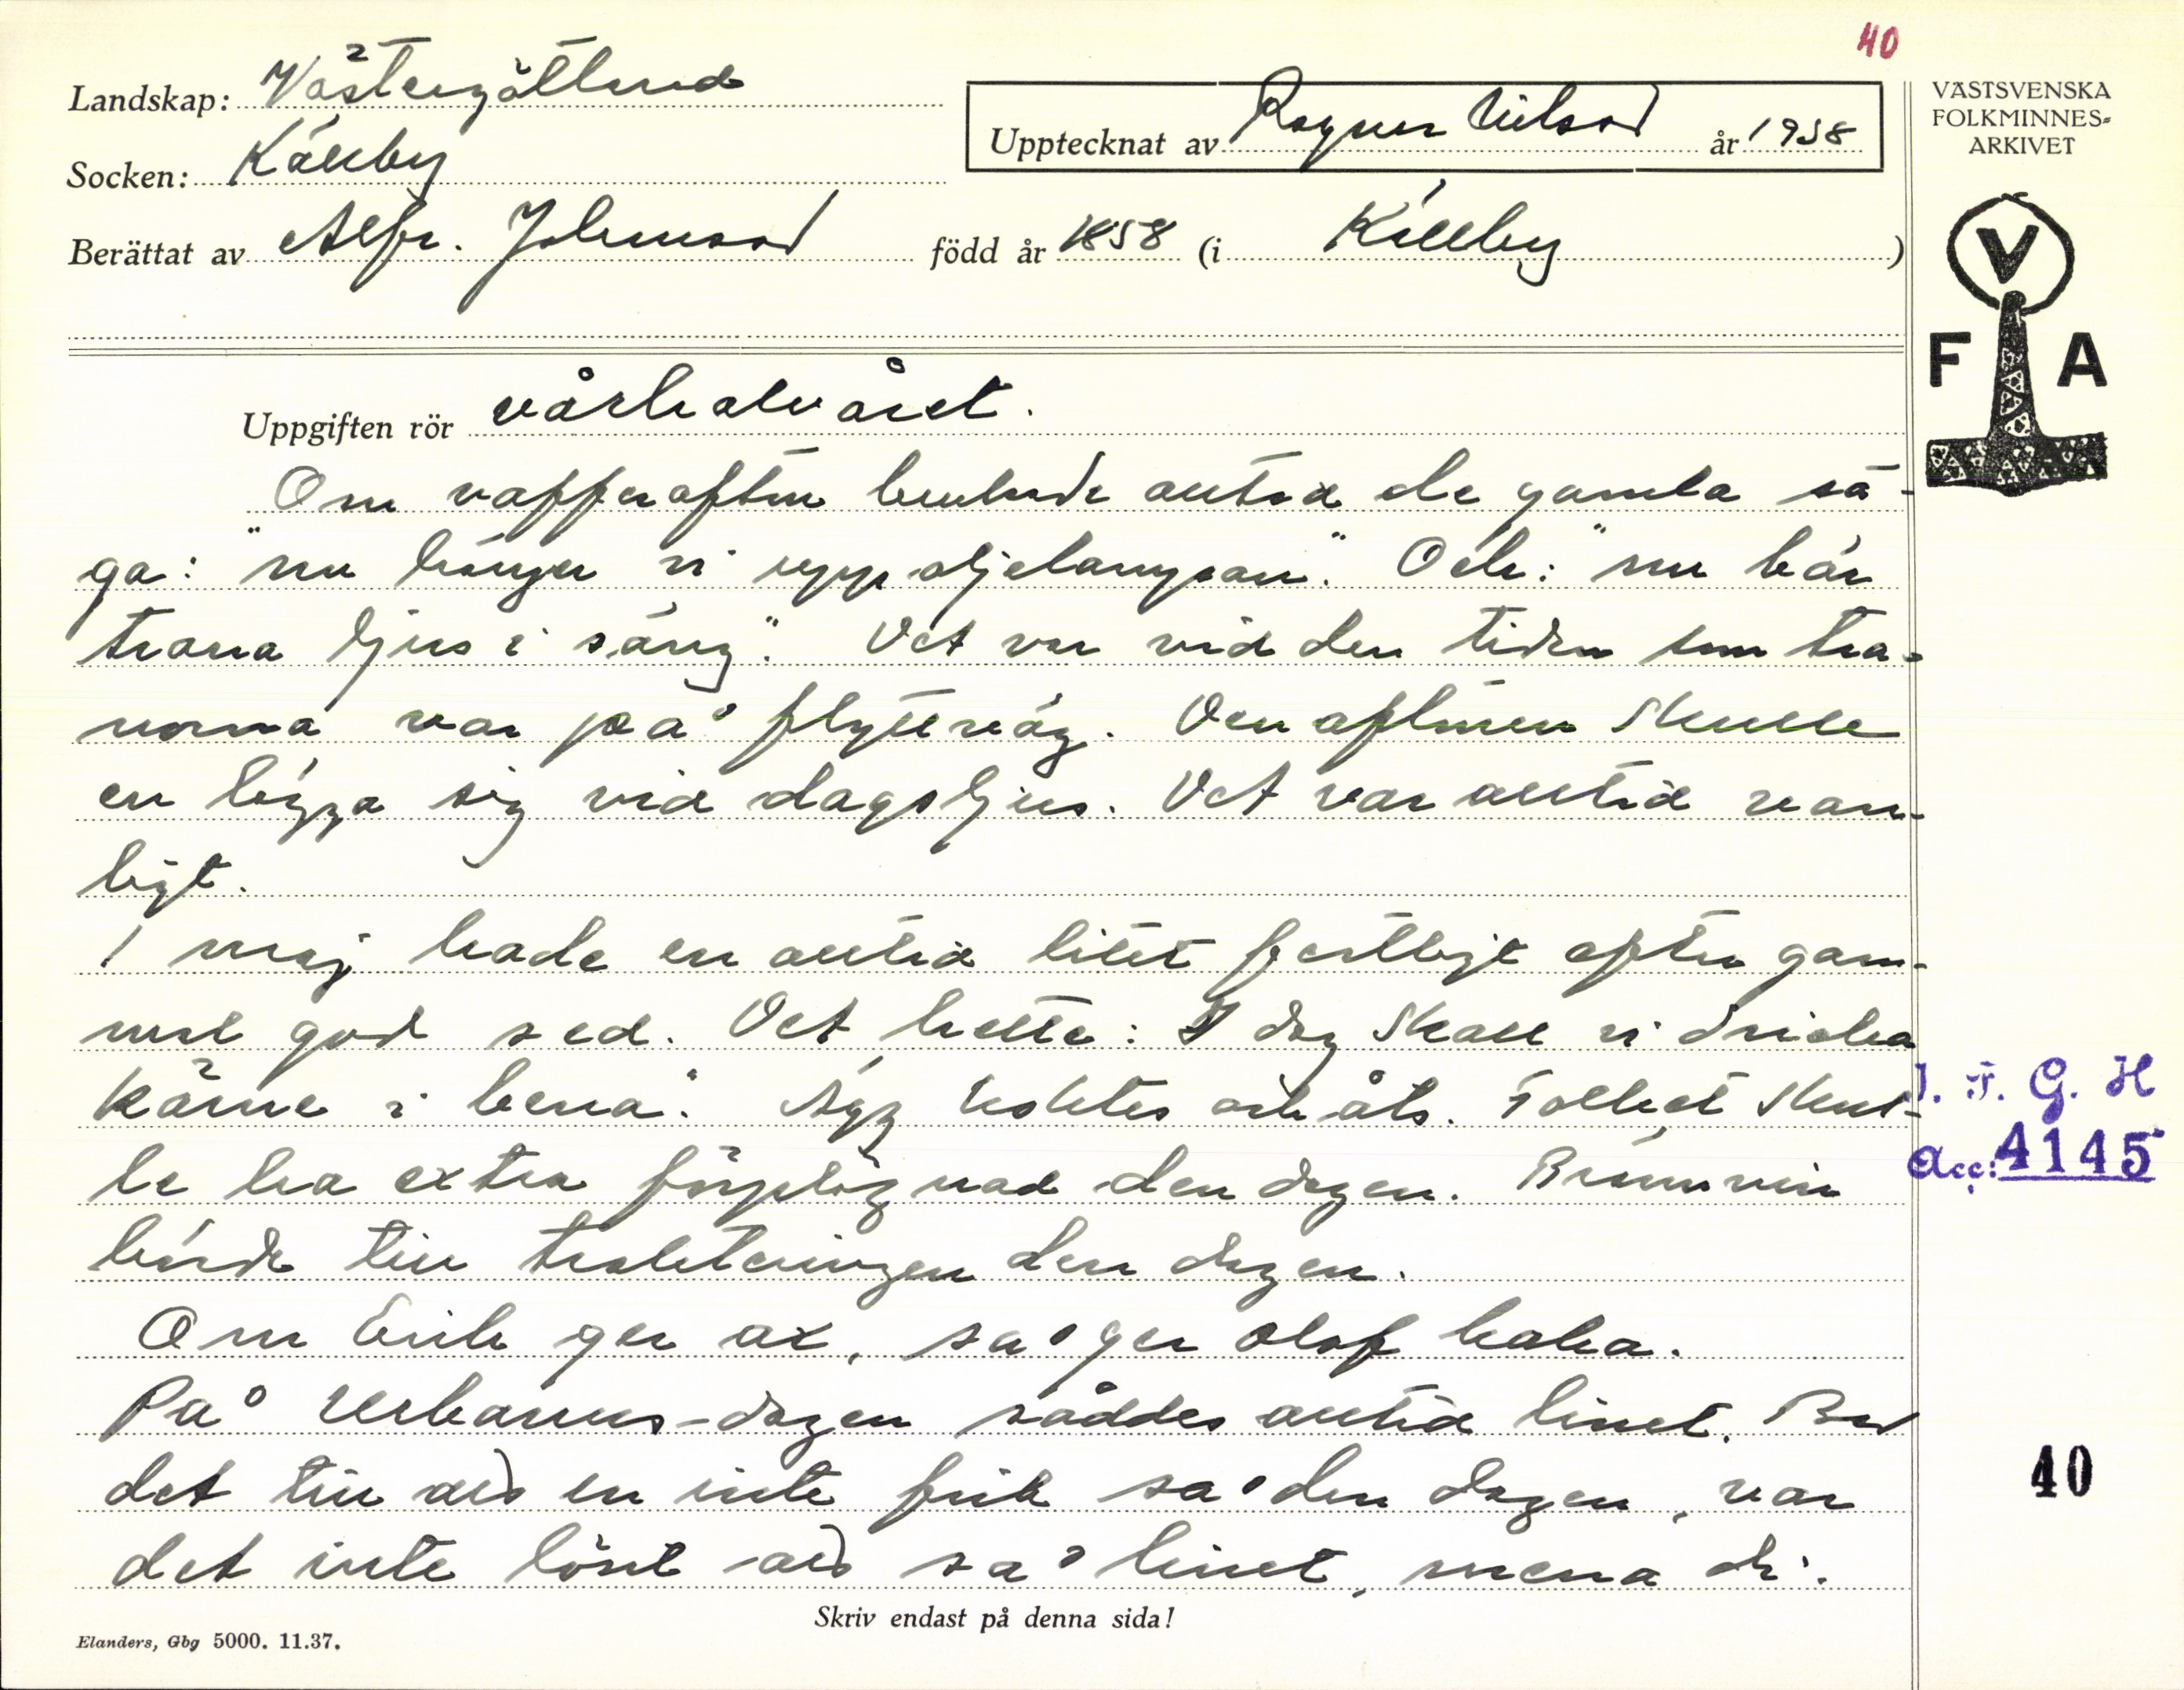 40
Landskap: Västergötland
Socken: Källby
Berättat av Alfr. Johansson född år 1858 (i Källby)
Upptecknat av Ragnar Nilsson år 1938
VÄSTSVENSKA
FOLKMINNES-
ARKIVET
V
F A
Uppgiften rör vårhalvåret.
Om vafferaften brukade alltid de gamla sä-
ga: "nu hänger vi upp oljelampan". Och: "nu bär
trana ljus i säng". Det var vid den tiden som tra-
norna var på flyttväg. Den aftonen skulle
en lägga sig vid dagsljus. Det var alltid van-
ligt.
1 maj hade en alltid litet festligt efter gam-
mal god sed. Det hette: "I dag skall vi dricka
kärne i bena". Ägg koktes och åts. Folket skul-
le ha extra förplägnad den dagen. Brännvin
hörde till trakteringen den dagen.
Om Erik ger ax, så ger Olof kaka.
På Urbanus-dagen såddes alltid linet. Bar
det till att en inte fick så den dagen, var
det inte lönt att så linet, mena di.
J. F. G. H
Acc: 4145
40
Skriv endast på denna sida!
Elanders, Gbg 5000. 11.37.